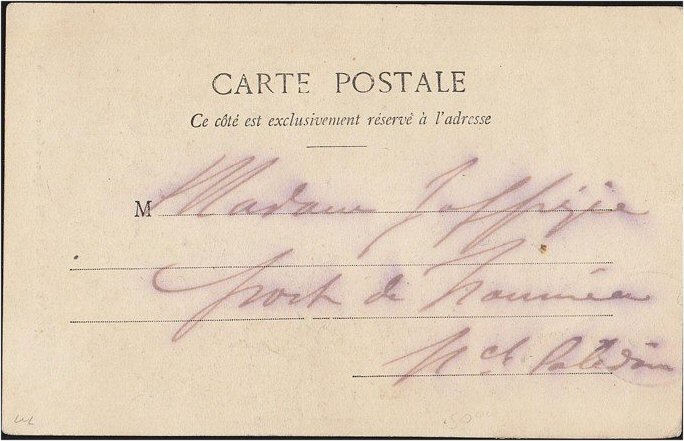 CARTE POSTALE
Ce côté est exclusivement réservé à l'adresse
M Madame
port de Nouméa
Nlle Calédonie